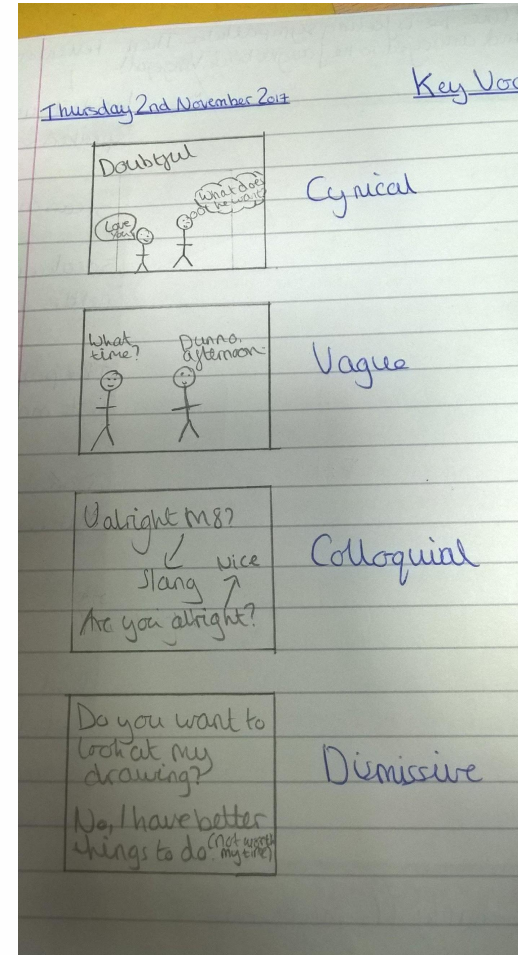 Key Voc
Thursday 2nd November 2017
Doubtful
What does
he want?
Love
you
Cynical
What
time?
Dunno,
afternoon.
Vague
U alright M8?
Slang
Nice
Are you alright?
Colloquial
Do you want to
look at my
drawing?
No, I have better
things to do (not worth
my time)
Dismissive